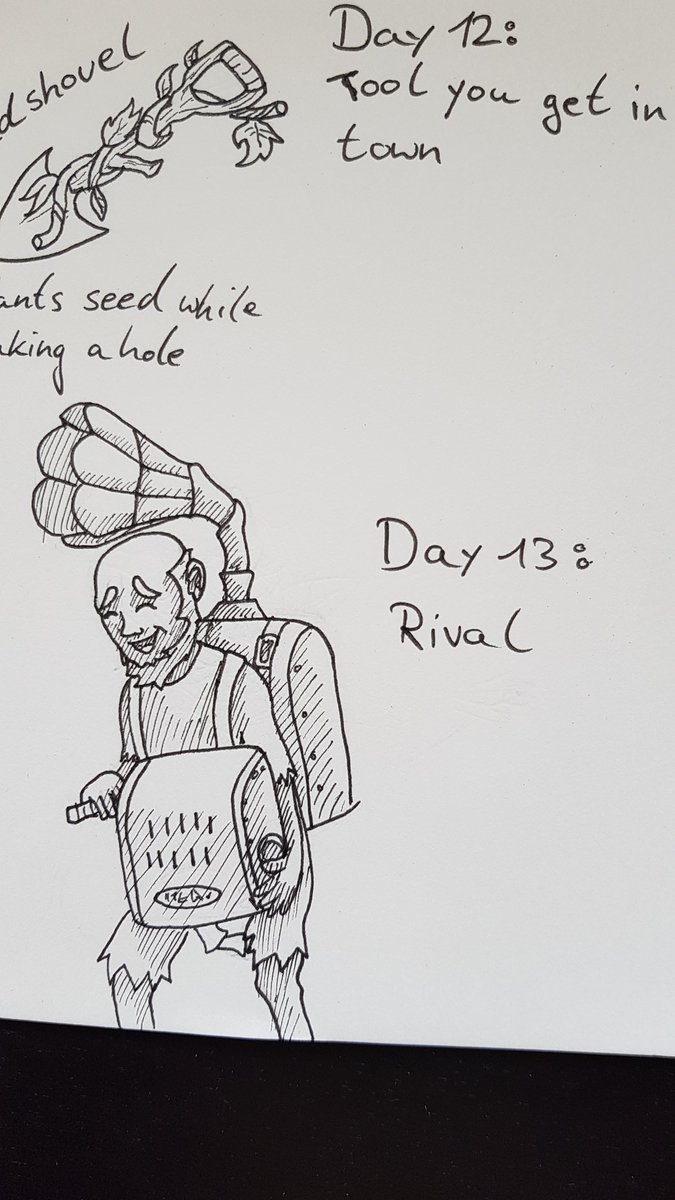 d shovel
Day 12:
Tool you get in
town
ants seed while
king a hole
Day 13:
Rival